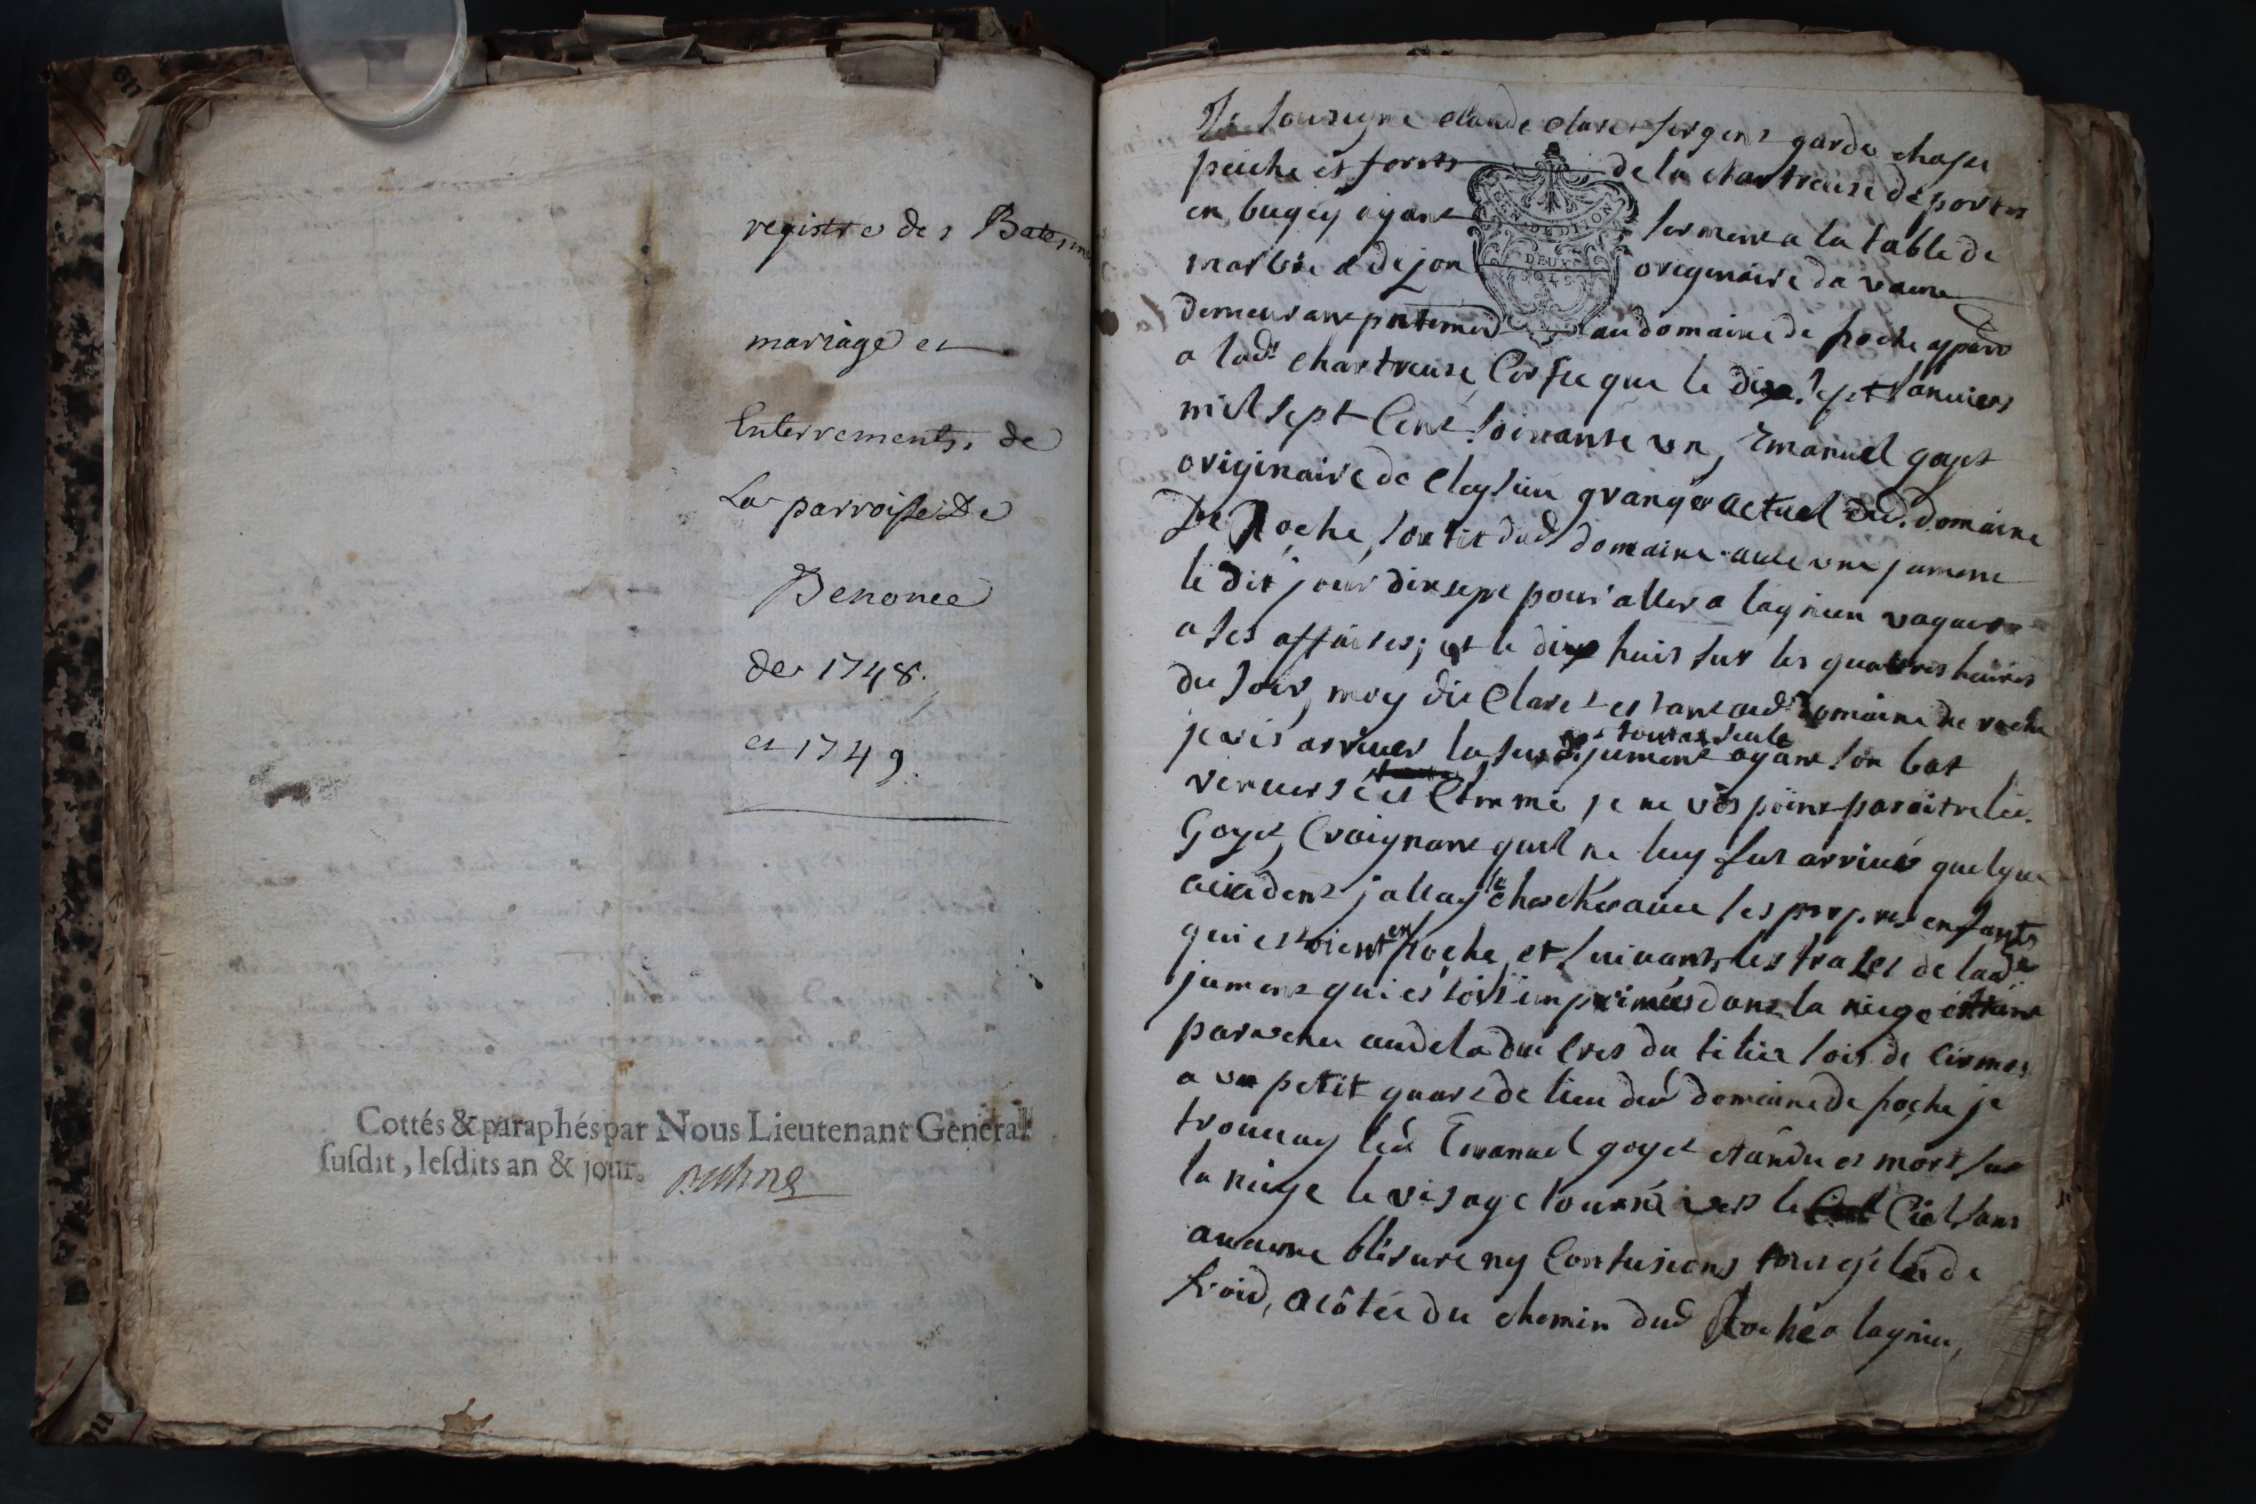 registre des Batesme
mariage et
Enterrements, de
La parroisse De
Benonce
de 1748.
et 1749.
Cottés & paraphés par Nous Lieutenant General
susdit, lesdits an & jour.
Je sousigné claude claret sergent garde chasse
peiche et forets de la chartreuse de portes
en bugey ayant serment a la table de
marbre de dijon originaire de vaux
demeurant au domaine de roche
a lad. chartreuse, Certifie que le dix sept Janvier
mil sept Cent soixante un, Emanuel goyet
originaire de cleysieu granger actuel dud. domaine
De Roche, sortit dud domaine avec une jument
le dit jour dix sept pour aller a lagnieu vaquer
a ses affaires; et le dix huit sur les quatres heures
du soir, moy dit Claret estant aud. domaine de roche
je vis arriver la sus d. jument toutte seule ayant son bat
renversé et Comme je ne vis point paroitre led.
Goyet, Craignant quil ne luy fut arrivé quelque
accident j allay le chercher avec ses propres enfants
qui estoient en Roche, et suivants les traces de lad.
jument qui estoit imprimées dans la neige estant
parvenu audela du cres du
a un petit quart de lieu du domaine de roche je
trouvay led Emanuel goyet etandu et mort sur
la neige le visage tourné vers le Ciel sans
aucune blesure ny Contusions gélé de
froid, a côtée du chemin dud Roche a lagnieu,
GEN. DE DIJON
DEUX
SOLS